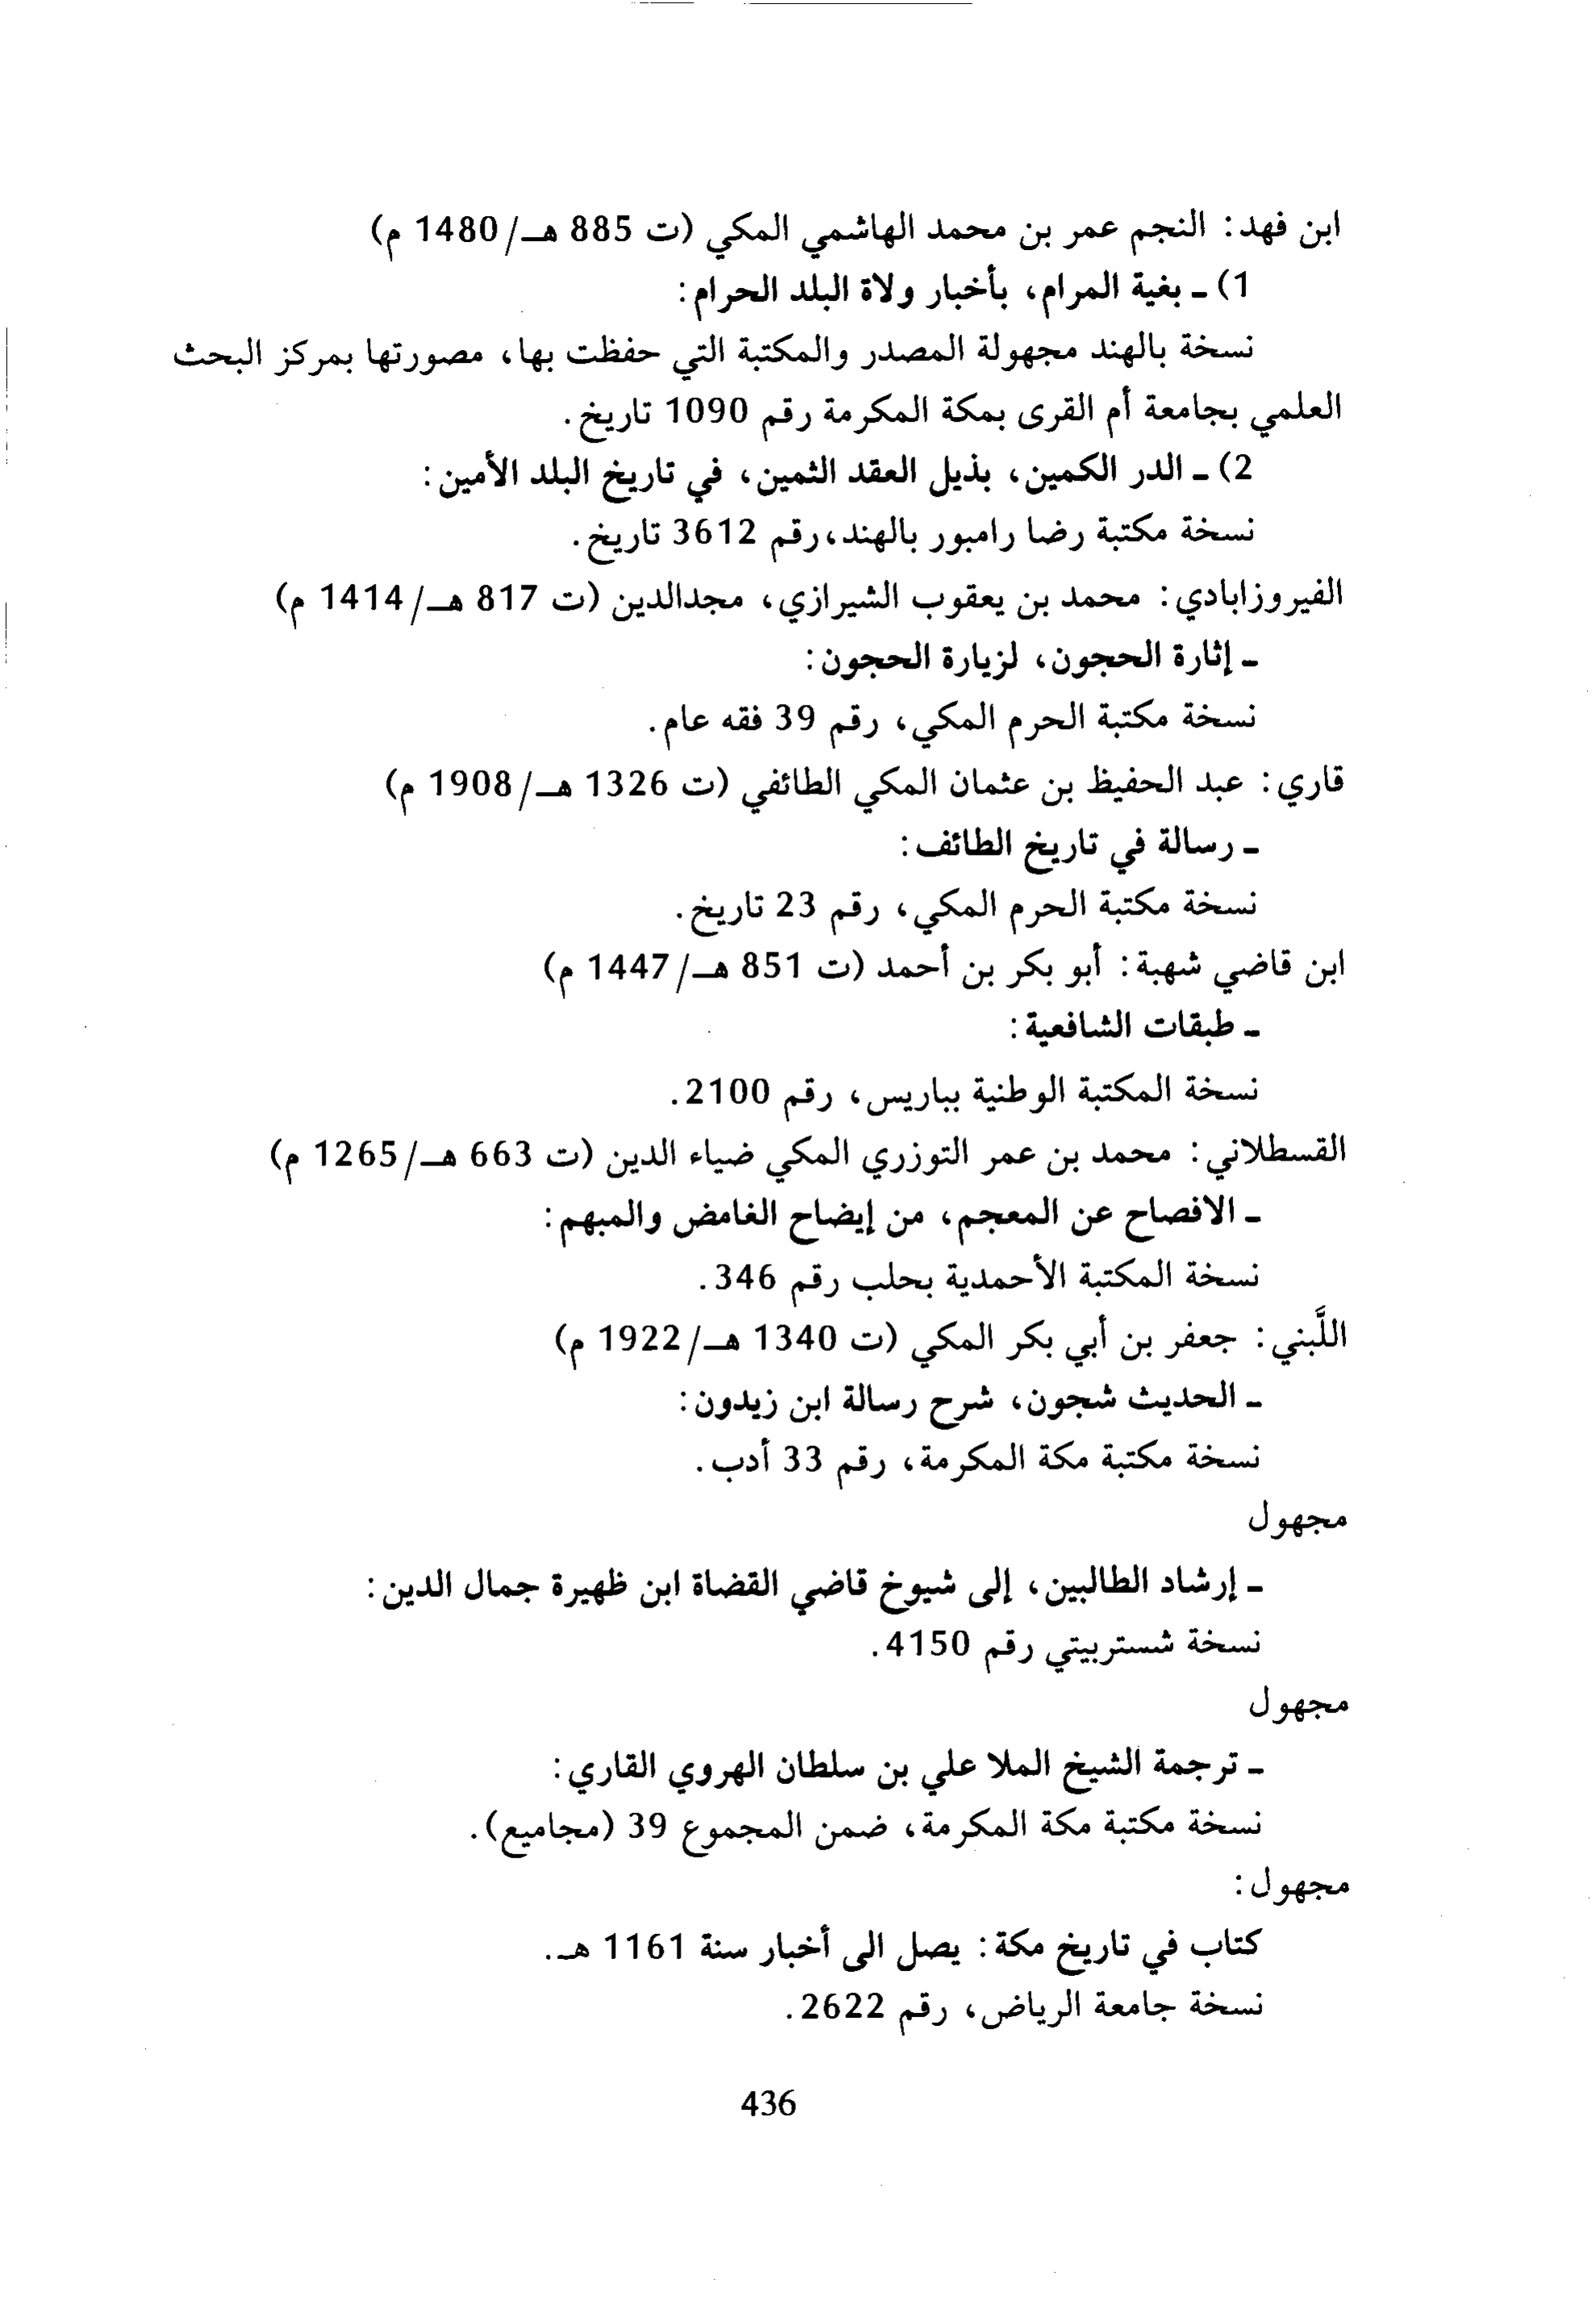 ابن فهد: النجم عمر بن محمد الهاشمي المكي (ت 885 هـ/1480 م)
1) ـ بغية المرام، بأخبار ولاة البلد الحرام:
نسخة بالهند مجهولة المصدر والمكتبة التي حفظت بها، مصورتها بمركز البحث
العلمي بجامعة أم القرى بمكة المكرمة رقم 1090 تاريخ.
2) ـ الدر الكمين، بذيل العقد الثمين، في تاريخ البلد الأمين:
نسخة مكتبة رضا رامبور بالهند،رقم 3612 تاريخ.
الفيروزابادي: محمد بن يعقوب الشيرازي، مجدالدين (ت 817 هـ/1414 م)
ـ إثارة الحجون، لزيارة الحجون:
نسخة مكتبة الحرم المكي، رقم 39 فقه عام.
قاري: عبد الحفيظ بن عثمان المكي الطائفي (ت 1326 هـ/1908 م)
ـ رسالة في تاريخ الطائف:
نسخة مكتبة الحرم المكي، رقم 23 تاريخ.
ابن قاضي شهبة: أبو بكر بن أحمد (ت 851 هـ/1447 م)
ـ طبقات الشافعية:
نسخة المكتبة الوطنية بباريس، رقم 2100.
القسطلاني: محمد بن عمر التوزري المكي ضياء الدين (ت 663 هـ/1265 م)
ـ الافصاح عن المعجم، من إيضاح الغامض والمبهم:
نسخة المكتبة الأحمدية بحلب رقم 346.
اللَّبني: جعفر بن أبي بكر المكي (ت 1340 هـ/1922 م)
ـ الحديث شجون، شرح رسالة ابن زيدون:
نسخة مكتبة مكة المكرمة، رقم 33 أدب.
مجهول
ـ إرشاد الطالبين، إلى شيوخ قاضي القضاة ابن ظهيرة جمال الدين:
نسخة شستربيتي رقم 4150.
مجهول
ـ ترجمة الشيخ الملا علي بن سلطان الهروي القاري:
نسخة مكتبة مكة المكرمة، ضمن المجموع 39 (مجاميع).
مجهول:
كتاب في تاريخ مكة: يصل الى أخبار سنة 1161 هـ.
نسخة جامعة الرياض، رقم 2622.
436